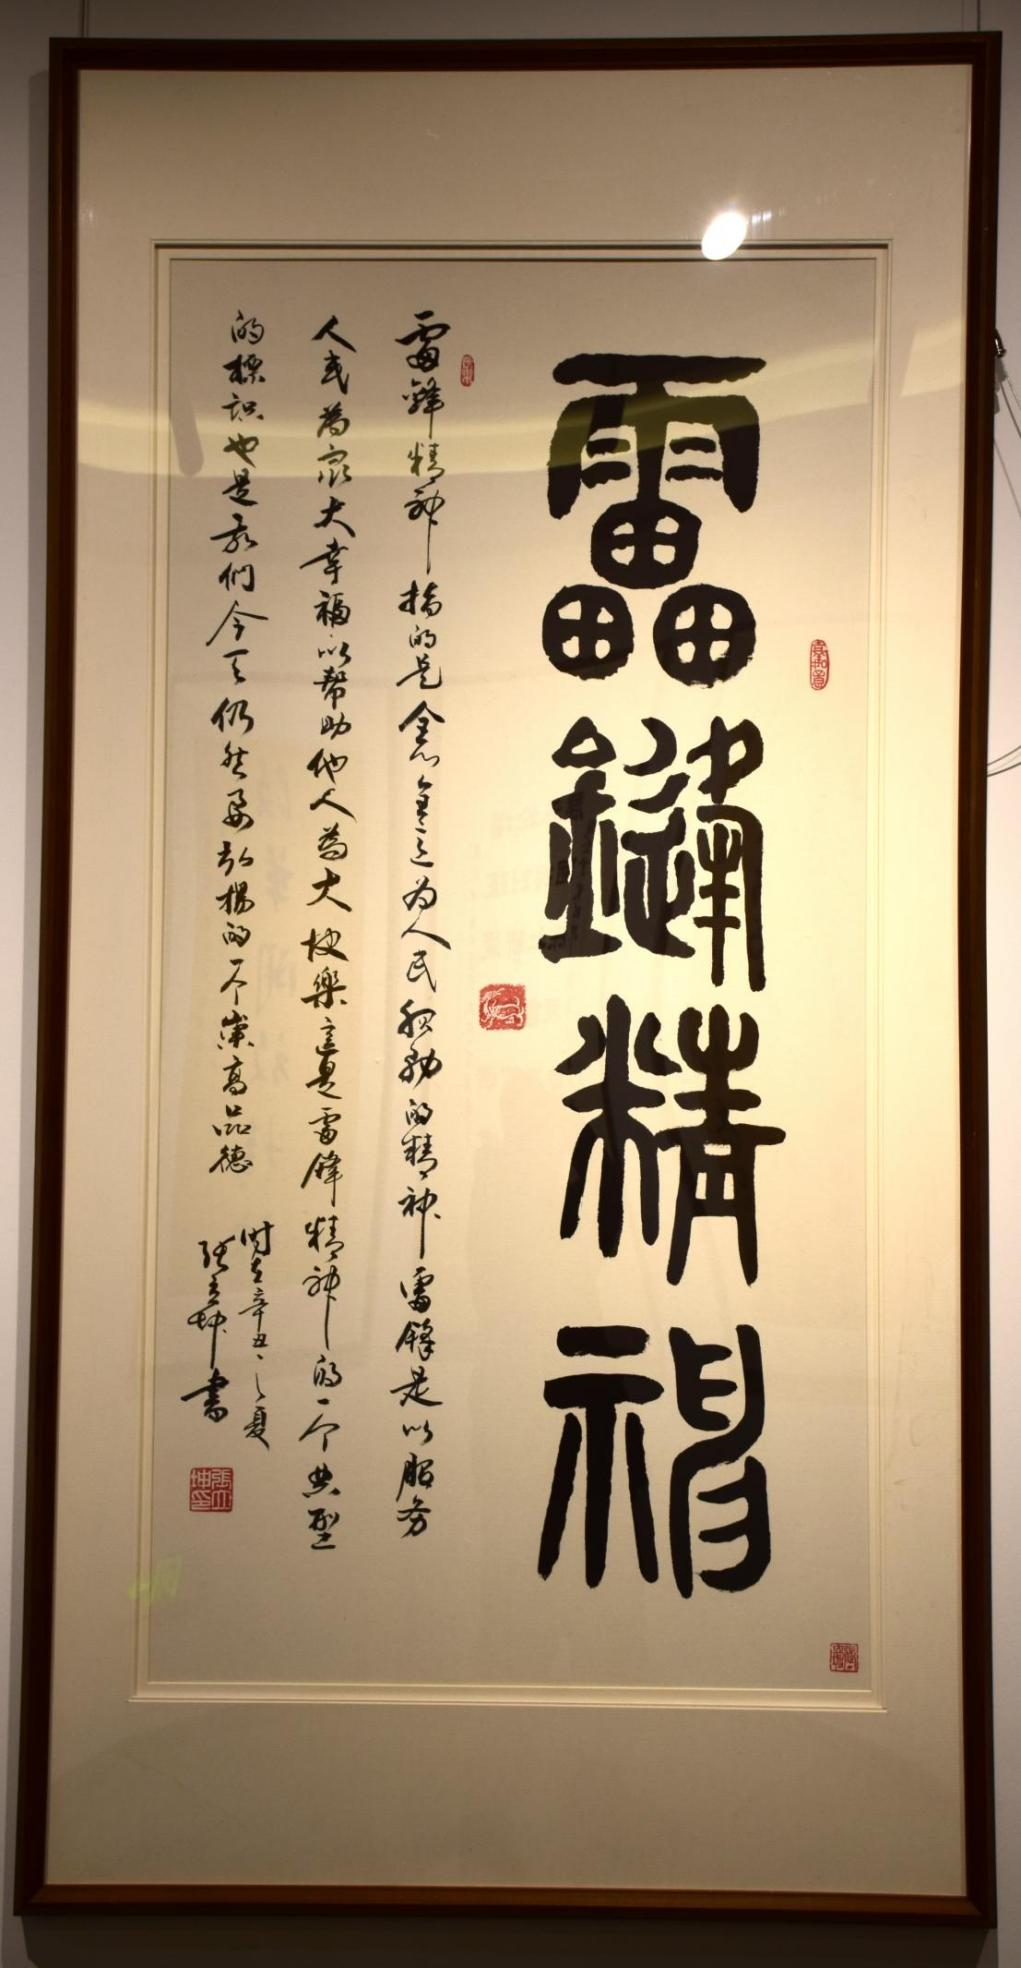 雷鋒精神
雷鋒精神指的是全心全意为人民服務的精神雷鋒是以服务
人民為最大幸福以帮助他人為大快樂這是雷鋒精神的一个典型
的標识也是我们今天仍然要弘揚的一个崇高品德
时在辛丑之夏
張立坤書
張立坤印